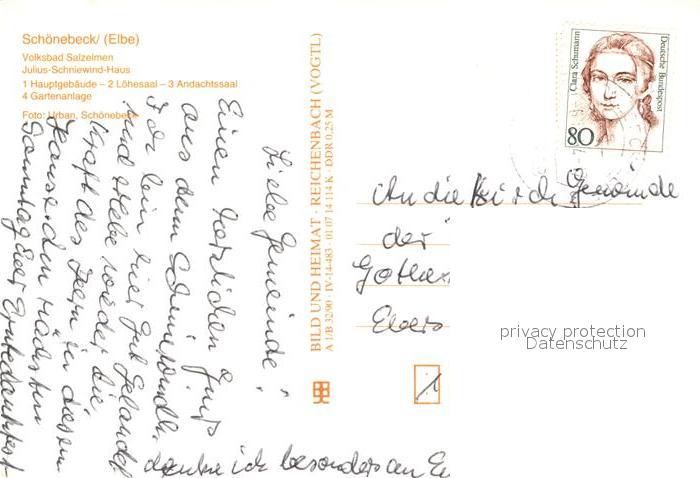 Schönebeck/ (Elbe)
Volksbad Salzelmen
Julius-Schniewind-Haus
1 Hauptgebäude – 2 Löhesaal – 3 Andachtssaal
4 Gartenanlage
Foto: Urban, Schönebeck
Liebe Gemeinde!
Einen herzlichen Gruß
aus dem Schniewindh.
Ich bin hier gut gelandet
und hebe wieder die
Kraft des Herrn in diesem
Hause. den nächsten
Sonntag Euer Erntedankfest
denke ich besonders an
BILD UND HEIMAT · REICHENBACH (VOGTL)
A 1/B 32/90 · IV-14-483 · 01 07 14 114 K · DDR 0,25 M
Clara Schumann
Deutsche Bundespost
80
An die Kirch Gemeinde
der
Gothe
Ebers
1
privacy protection
Datenschutz